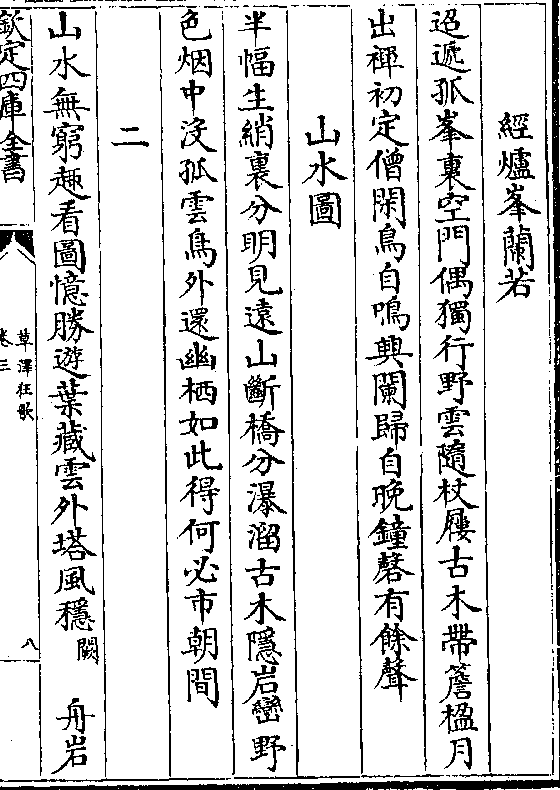 經爐峯蘭若
迢遞孤峯裏空門偶獨行野雲隨杖屨古木帶簷楹月
出禪初定僧閑鳥自鳴興闌歸自晚鐘磬有餘聲
山水圖
半幅生綃裏分明見遠山斷橋分瀑溜古木隱岩巒野
色烟中没孤雲鳥外還幽栖如此得何必市朝間
二
山水無窮趣看圖憶勝遊葉藏雲外塔風穩闕舟岩
欽定四庫全書
草澤狂歌
卷三
八